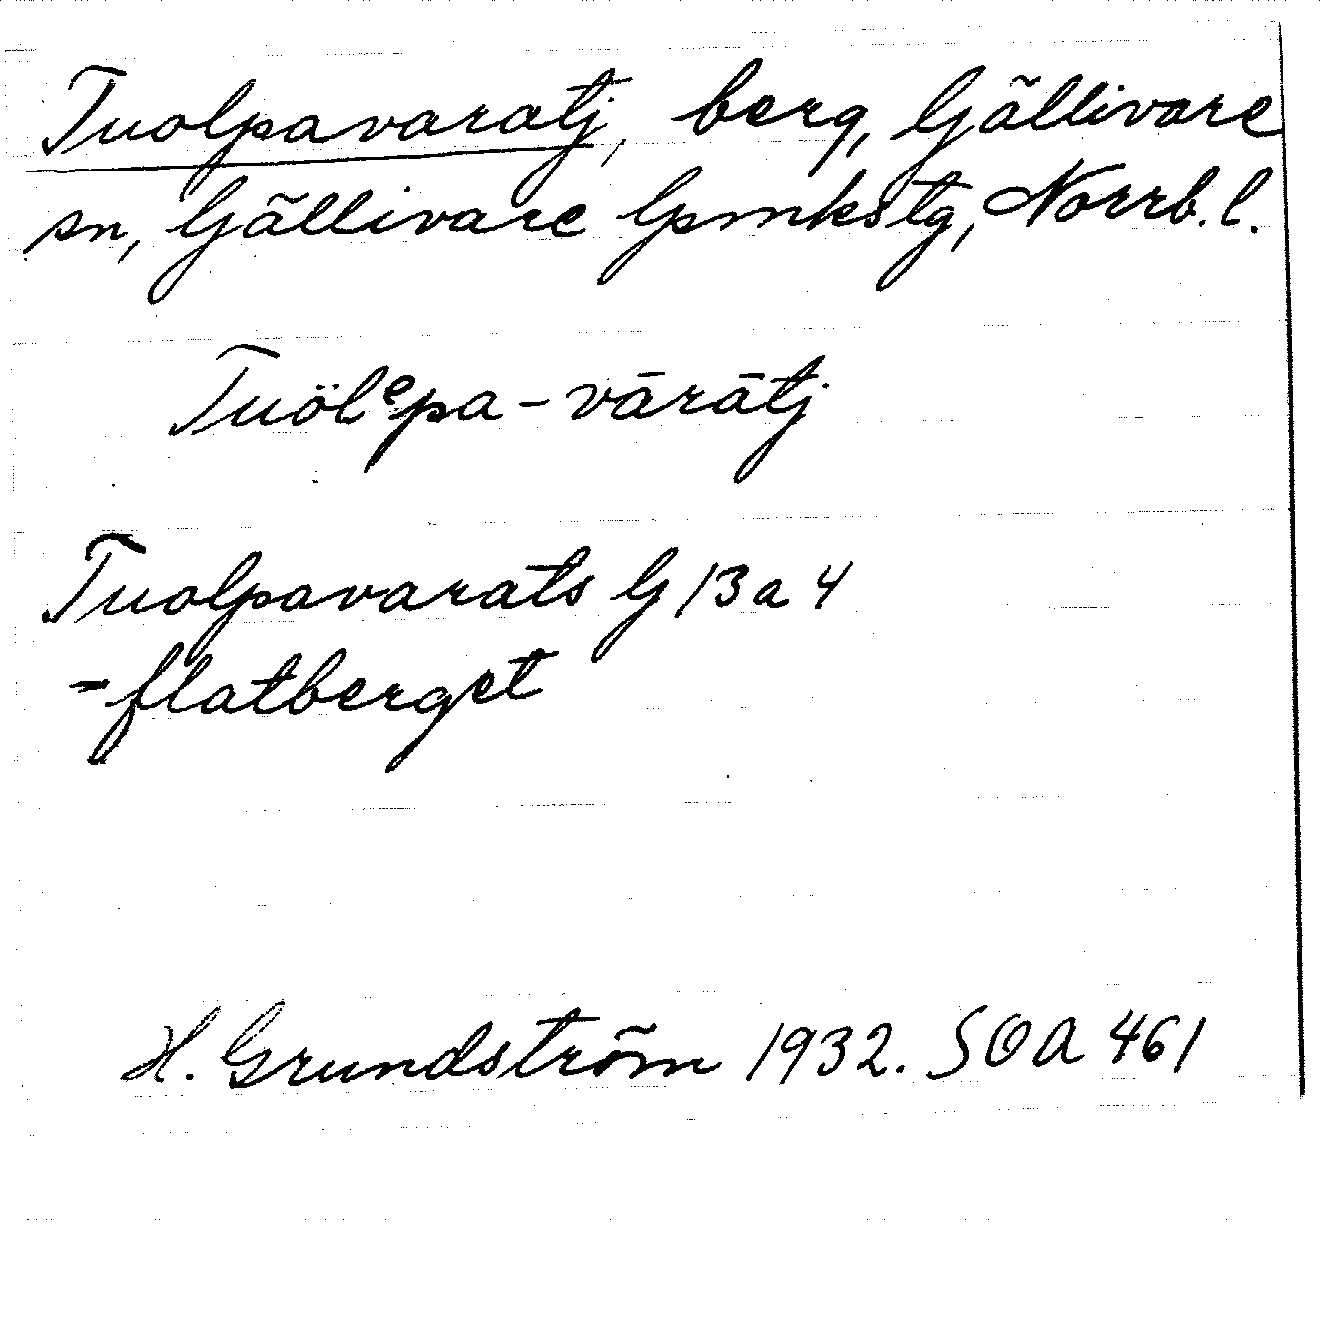 Tuolpavaratj, berg, Gällivare
sn, Gällivare Gpmkstg, Norrb. l.
Tuölᵉpa-vārātj
Tuolpavarats G 13 a 4
= flatberget
H. Grundström 1932. SOA 461